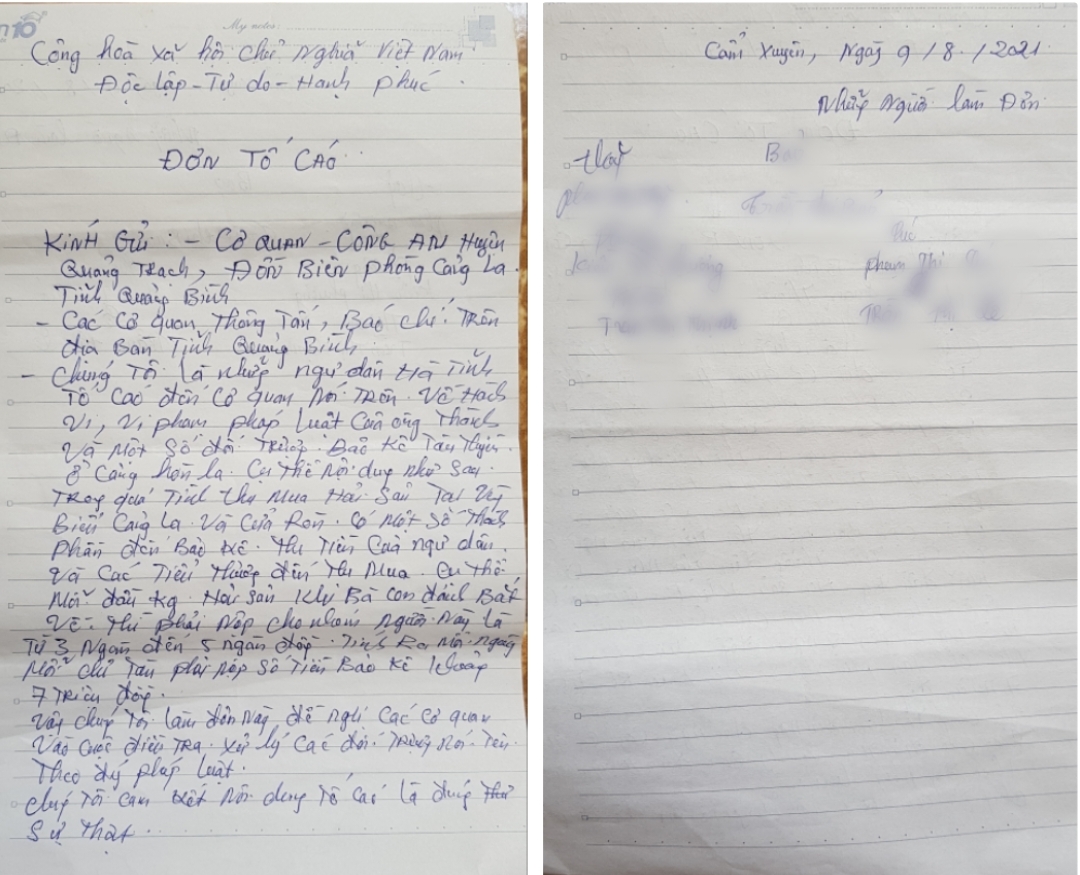 My notes
Công hoà xã hội chủ nghĩa Việt Nam
Độc lập - Tự do - Hạnh phúc
ĐƠN TỐ CÁO
KÍNH GửI : - CƠ QUAN - CÔNG AN Huyện
Quảng Trạch, ĐỒN Biên phòng Cảng La
Tỉnh Quảng Bình
- Các Cơ quan Thông Tấn, Báo chí Trên
địa Bàn Tỉnh Quảng Bình
- Chúng Tôi là những ngư dân Hà Tĩnh
Tố Cáo đến Cơ quan Nói Trên Về Hành
Vi, Vi phạm pháp luật Của ông Thành
Và Một Số đối Tượng Bảo Kê Tàu Thuyền
ở Cảng hòn la. Cụ Thể Nội dung như Sau.
Trong quá Trình thu Mua Hải Sản Tại Vùng
Biển Cảng La Và Cửa Ròn. Có Một Số Thành
phần đến Bảo Kê. Thu Tiền Của ngư dân.
Và Các Tiểu Thương đến Thu Mua. Cụ Thể
Mỗi đầu Kg Hải Sản Khi Bà Con đánh Bắt
Về. Thì phải Nộp cho nhóm Người Này Là
Từ 3 Ngàn đến 5 ngàn đồng. Tính Ra Mỗi Ngày
Mỗi Chủ Tàu phải Nộp Số Tiền Bảo Kê Khoảng
7 Triệu đồng.
Vậy chúng Tôi làm đơn Này, đề Nghị Các Cơ quan
Vào Cuộc điều Tra. Xử lý Các đối Tượng Nói Trên.
Theo đúng pháp luật.
chúng Tôi Cam Kết Nội dung Tố Cáo Là đúng Thư
Sự Thật.
Cẩm Xuyên, Ngày 9 / 8 / 2021
Những Người làm Đơn
phạm Thị